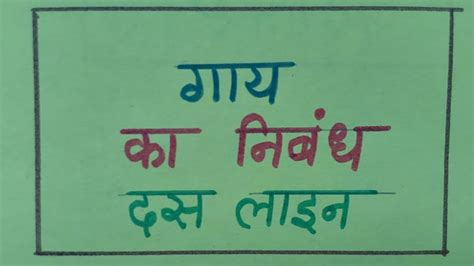 गाय
का निबंध
दस लाइन